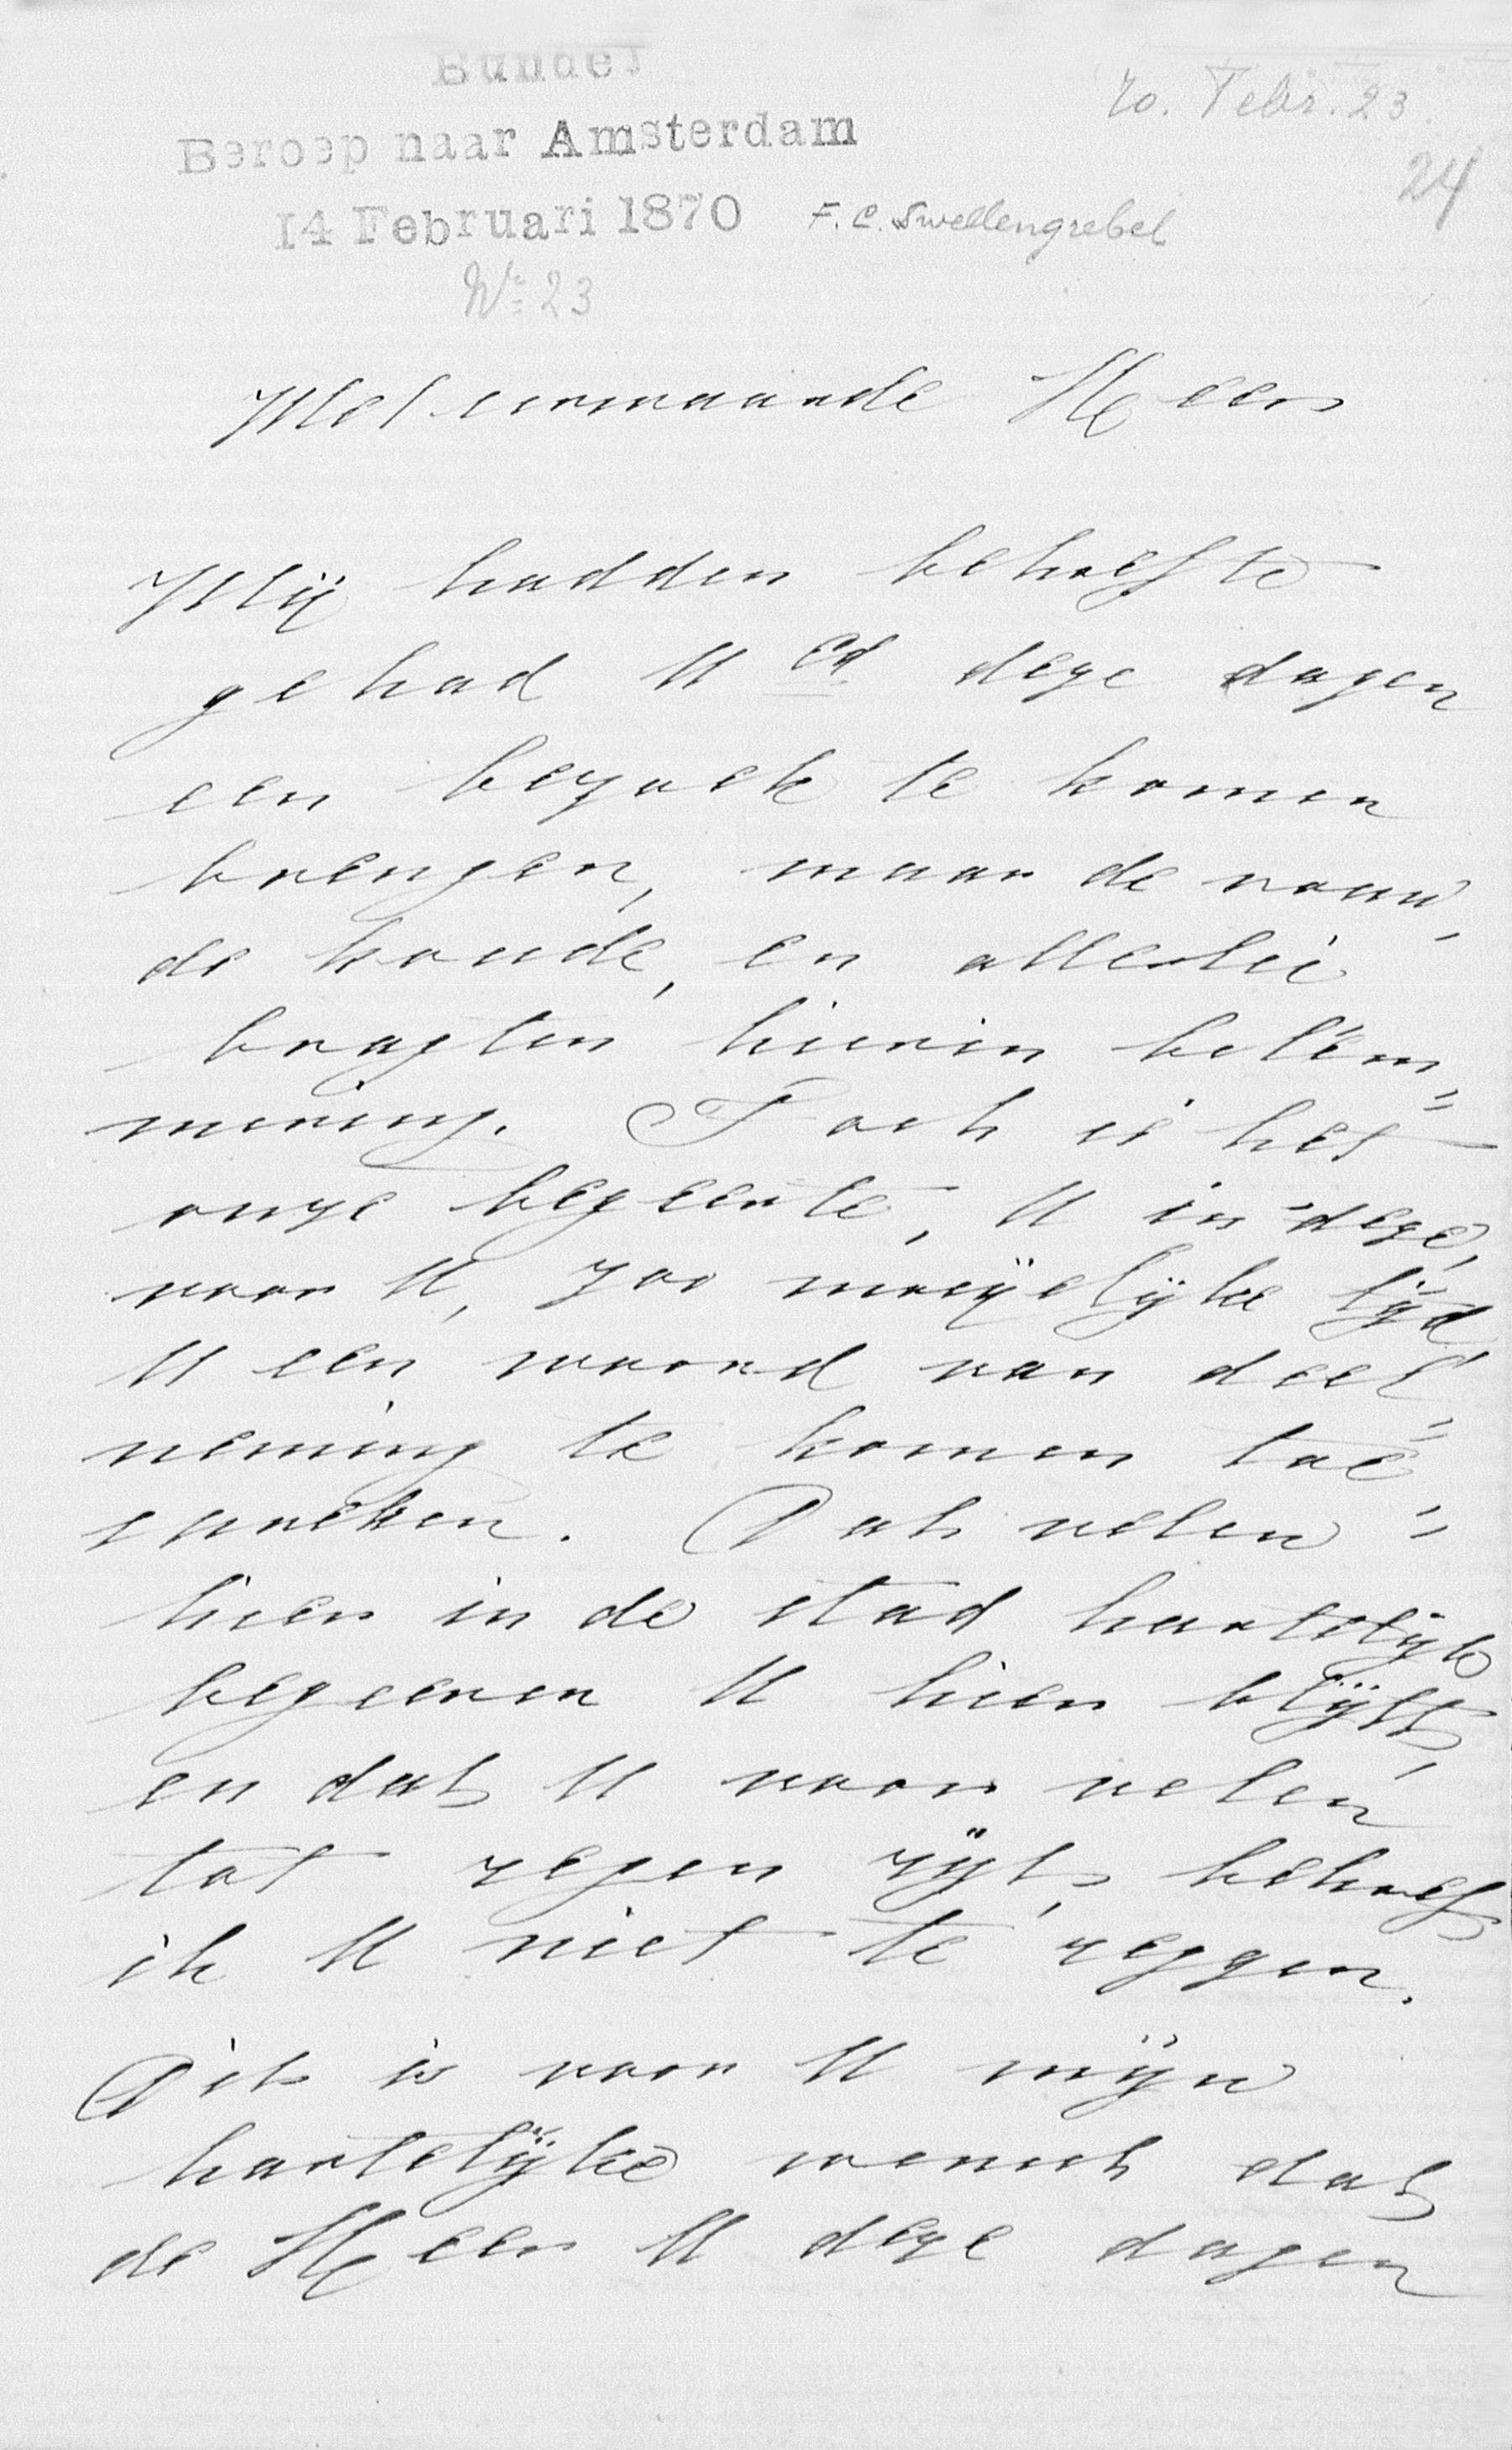 Bundel
70. Febr. 23.
Beroep naar Amsterdam
24
14 Februari 1870 F. C. Swellengrebel
No 23
Weleerwaarde Heer
Wij hadden behoefte
gehad U Ed deze dagen
een bezoek te komen
brengen, maar de rouw,
de koude, en allerlei
bragten hierin belem=
mering. Toch is het
onze begeerte, U in deze,
voor U, zoo moeijelijke tijd
U een woord van deel=
neming te komen toe=
spreken. Dat velen
hier in de stad hartelijk
begeeren U hier blijft,
en dat U voor velen
tot zegen zijt, behoef
ik U niet te zeggen.
Dit is voor U mijn
hartelijke wensch dat
de Heer U deze dagen